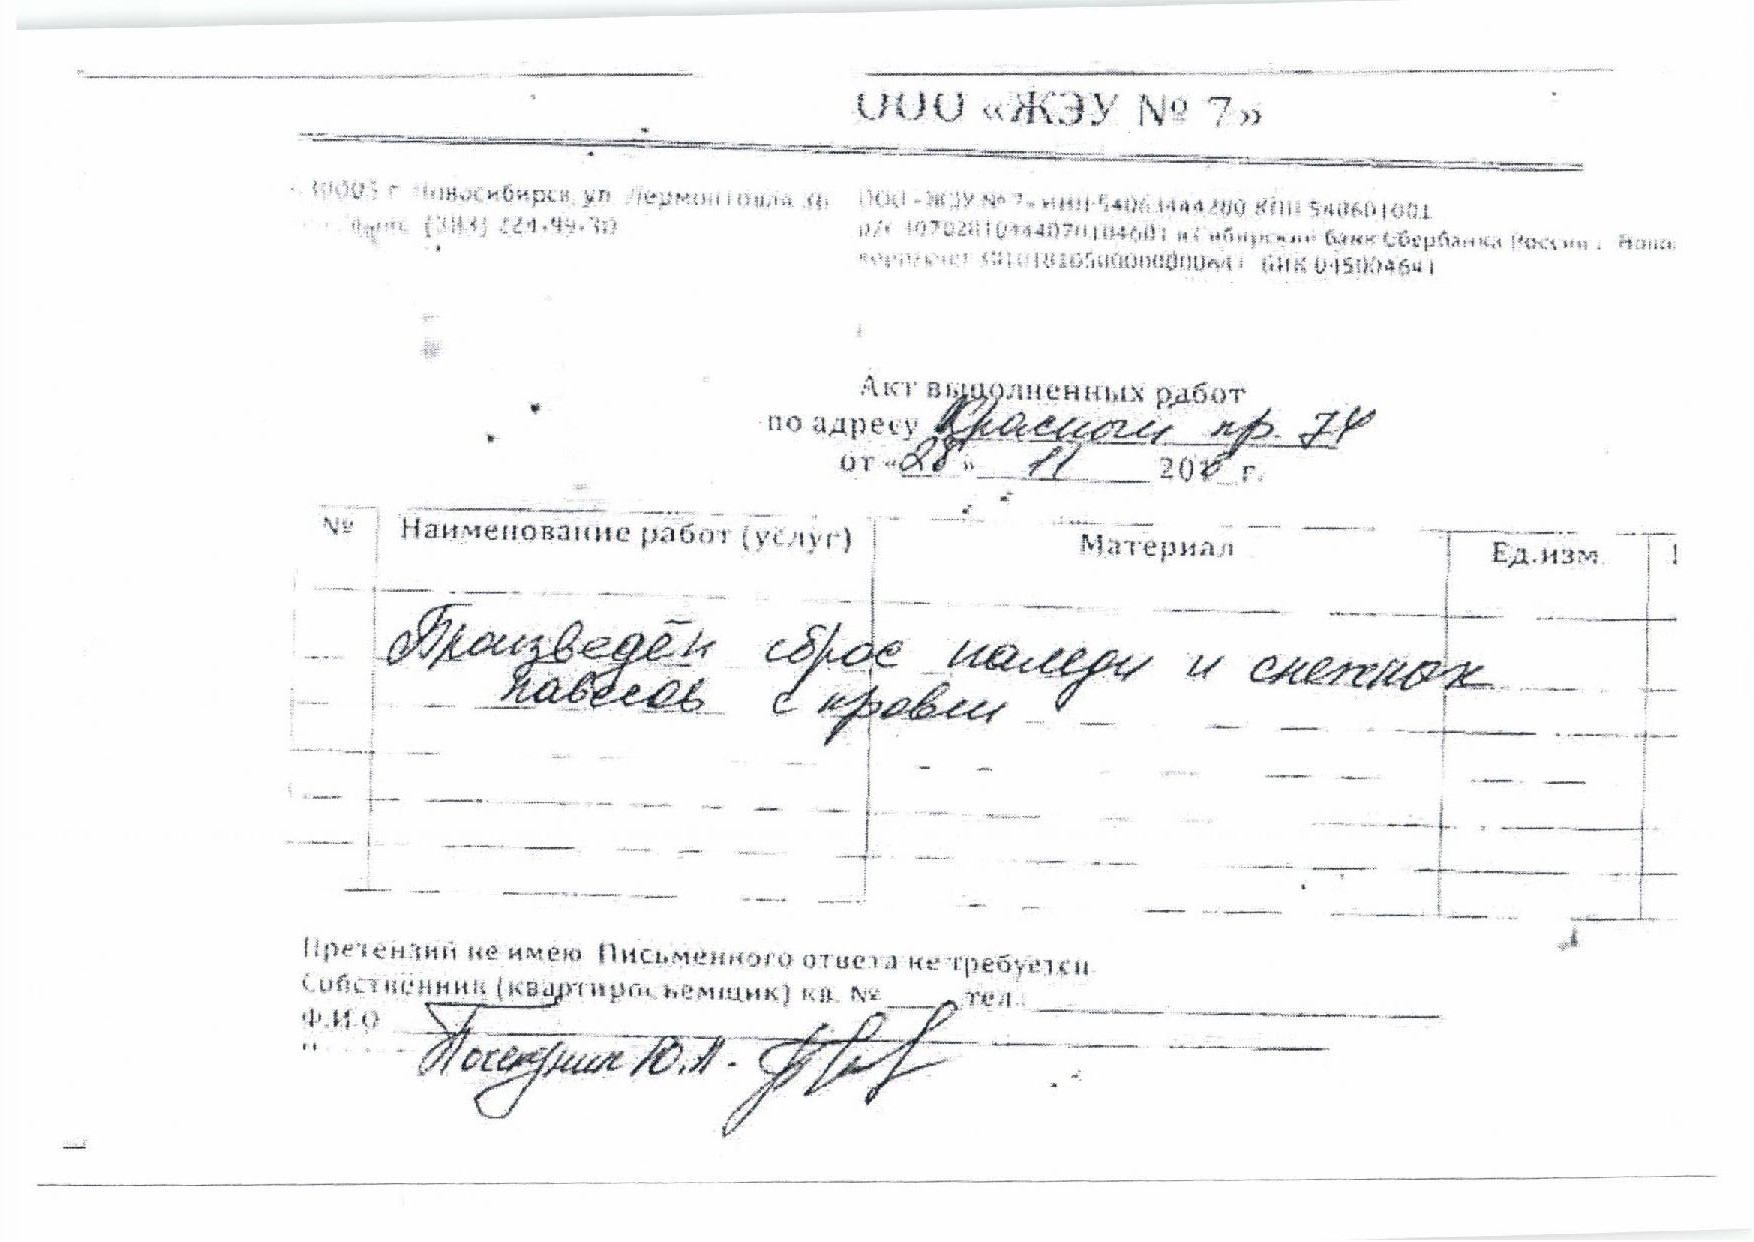 ООО «ЖЭУ № 7»
г. Новосибирск, ул. Лермонтова
(383) 224-99-30
ООО «ЖЭУ № 7» ИНН КПП 540601001
в Сибирский банк Сбербанка России г.
БИК 045004641
Акт выполненных работ
по адресу Красный пр. 74
от «28» 11 г.
№ Наименование работ (услуг) Материал Ед.изм.
Произведён сброс наледи и снежных
навесов с кровли
Претензий не имею. Письменного ответа не требуется.
Собственник (квартиросъемщик) кв. № тел.:
Ф.И.О
Ю.А.